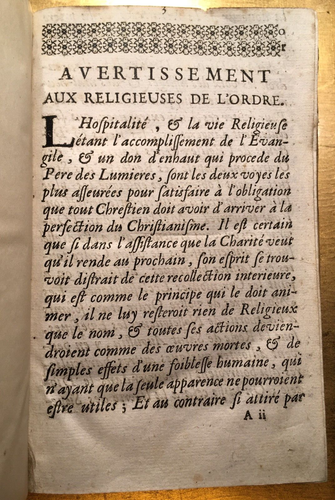 3
AVERTISSEMENT
AUX RELIGIEUSES DE L'ORDRE.
L'Hospitalité, & la vie Religieuse
étant l'accomplissement de l'Evan-
gile, & un don d'enhaut qui procede du
Pere des Lumieres, sont les deux voyes les
plus asseurées pour satisfaire à l'obligation
que tout Chrestien doit avoir d'arriver à la
perfection du Christianisme. Il est certain
que si dans l'assistance que la Charité veut
qu'il rende au prochain, son esprit se trou-
voit distrait de cette recollection interieure,
qui est comme le principe qui le doit ani-
mer, il ne luy resteroit rien de Religieux
que le nom, & toutes ses actions devien-
droient comme des œuvres mortes, & de
simples effets d'une foiblesse humaine, qui
n'ayant que la seule apparence ne pourroient
estre utiles; Et au contraire si attiré par
A ii